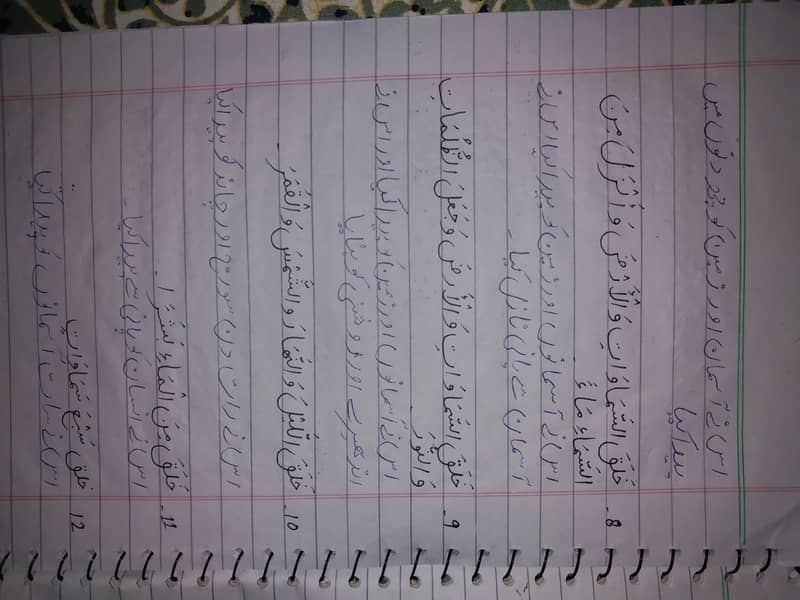 اس نے آسمان اور زمین کو چھ دنوں میں
پیدا کیا
8۔ خَلَقَ السَّمَاوَاتِ وَالْأَرْضَ وَأَنْزَلَ مِنَ
السَّمَاءِ مَاءً
اس نے آسمانوں اور زمین کو پیدا کیا اس نے
آسمان سے پانی نازل کیا۔
9۔ خَلَقَ السَّمَاوَاتِ وَالْأَرْضَ وَجَعَلَ الظُّلُمَاتِ
وَالنُّورَ
اس نے آسمانوں اور زمین کو پیدا کیا اور اس نے
اندھیرے اور روشنی کو بنایا
10۔ خَلَقَ اللَّيْلَ وَالنَّهَارَ وَالشَّمْسَ وَالْقَمَرَ۔
اس نے رات دن سورج اور چاند کو پیدا کیا
11۔ خَلَقَ مِنَ الْمَاءِ بَشَرًا۔
اس نے انسان کو پانی سے پیدا کیا۔
12۔ خَلَقَ سَبْعَ سَمَاوَاتٍ
اس نے سات آسمانوں کو پیدا کیا